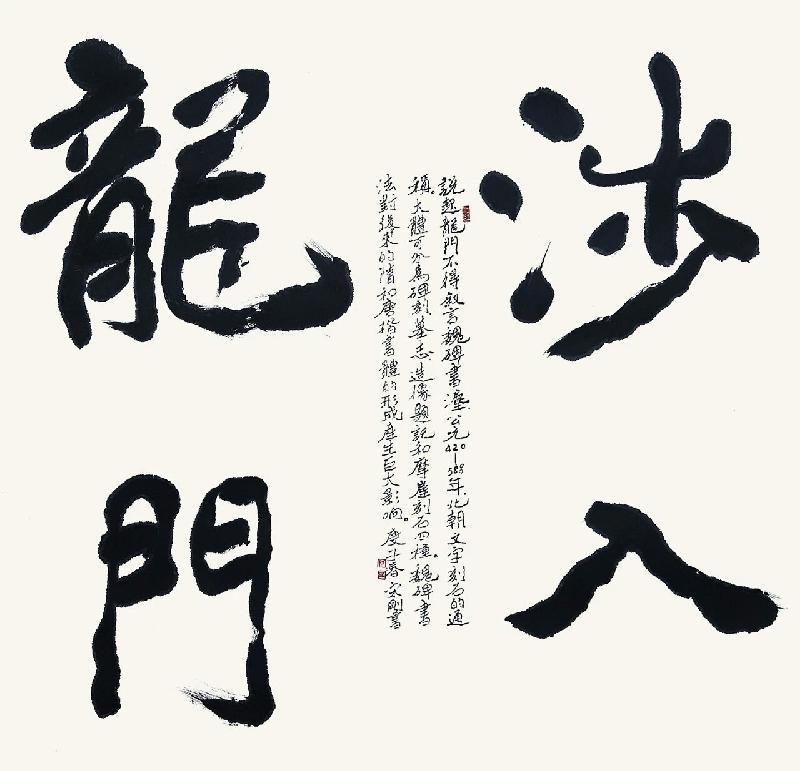 涉入
說起龍門不得敘言魏碑書灋公元420—588年北朝文字刻石的通
稱。大體可分為碑刻墓志造像題記和摩崖刻石四種。魏碑書
法對後來的隋和唐楷書體的形成產生巨大影响。春刚書
龍門